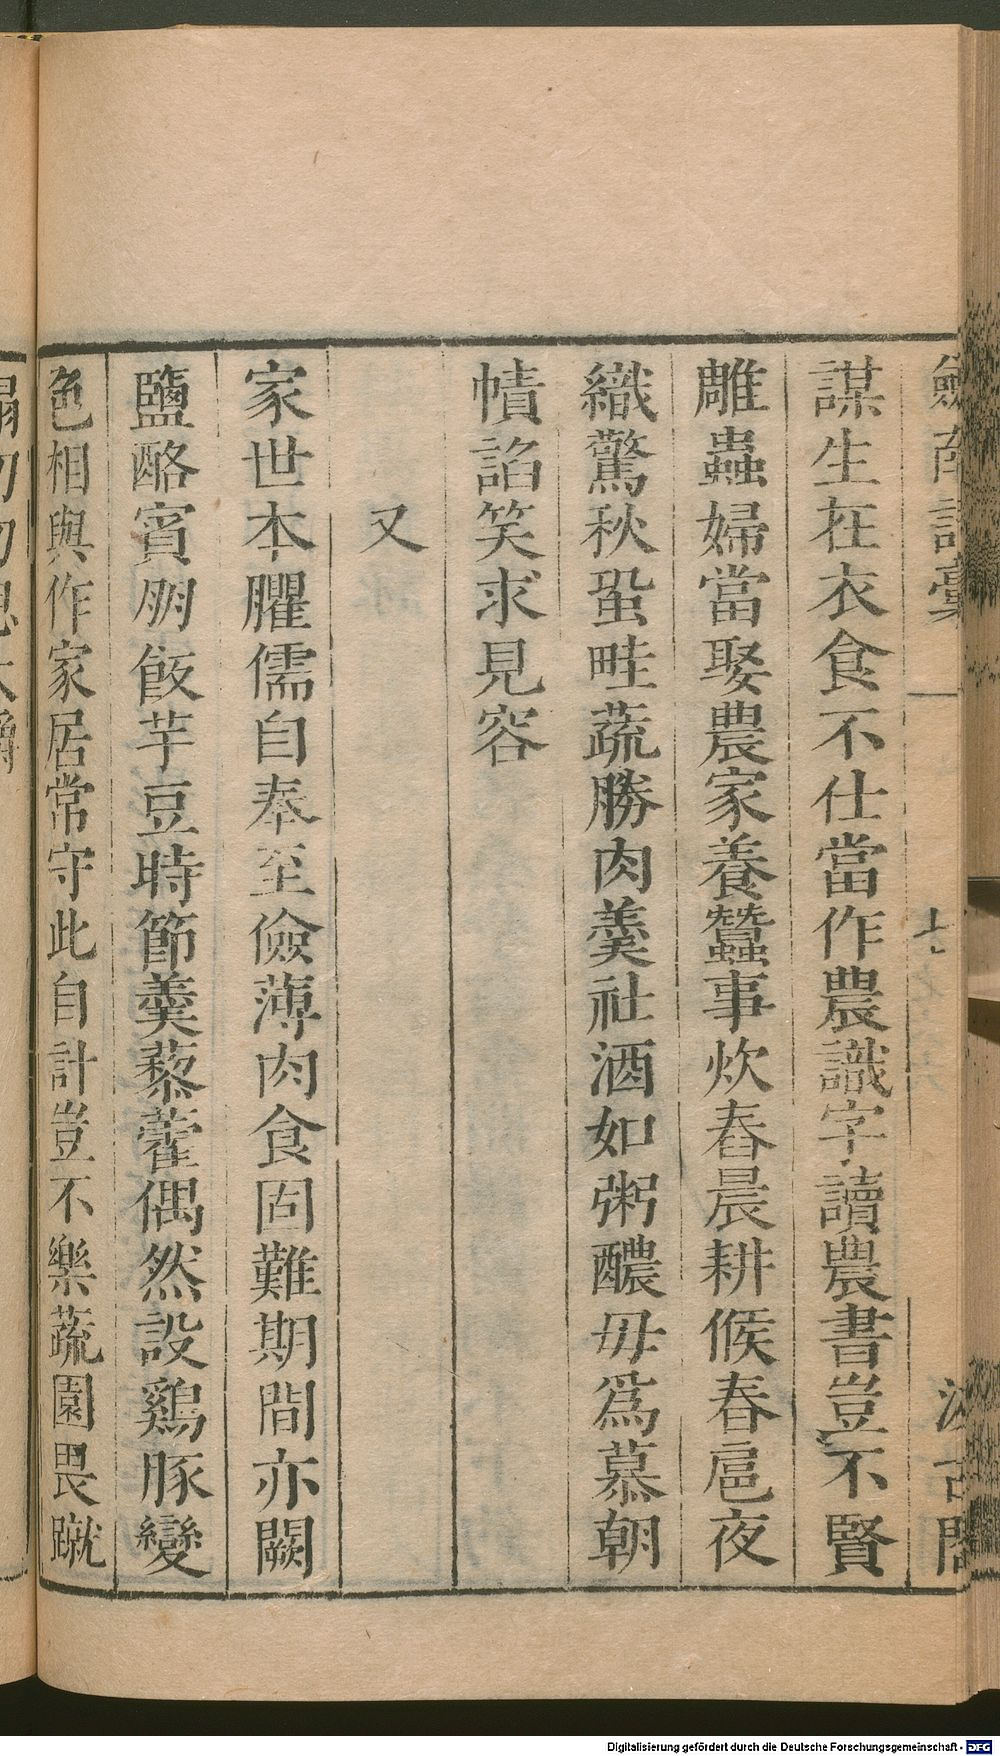 謀生在衣食不仕當作農識字讀農書豈不賢
雕蟲婦當娶農家養蠶事炊舂晨耕候春扈夜
織驚秋蛩畦蔬勝肉羹社酒如粥醲毋爲慕朝
幘諂笑求見容
又
家世本臞儒自奉至儉薄肉食固難期間亦闕
鹽酪賓朋飯芋豆時節羹藜藿偶然設鷄豚變
色相與作家居常守此自計豈不樂蔬園畏蹴
Digitalisierung gefördert durch die Deutsche Forschungsgemeinschaft - DFG